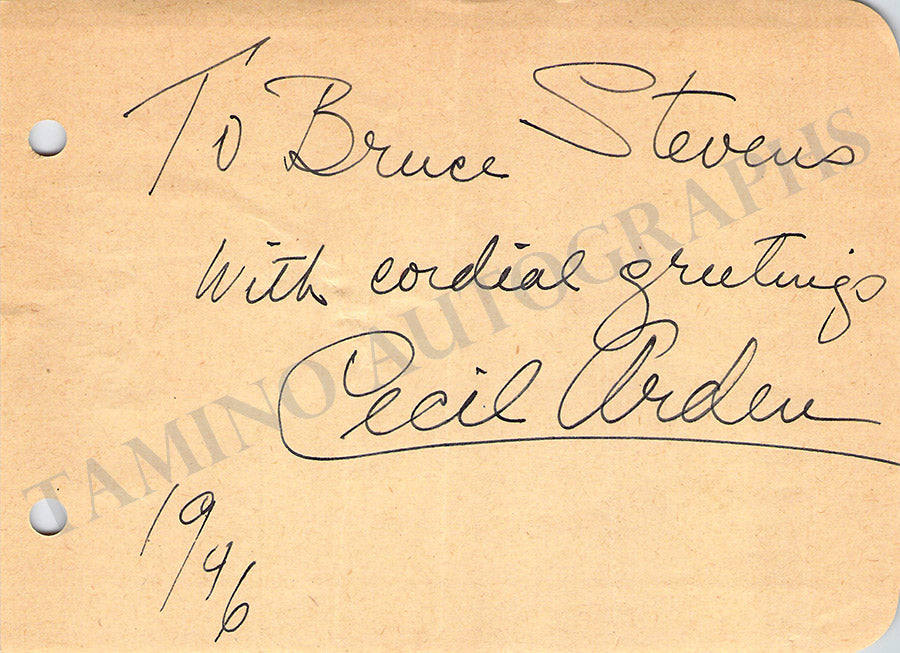 To Bruce Stevens
With cordial greetings
Cecil Arden
1946
TAMINO AUTOGRAPHS